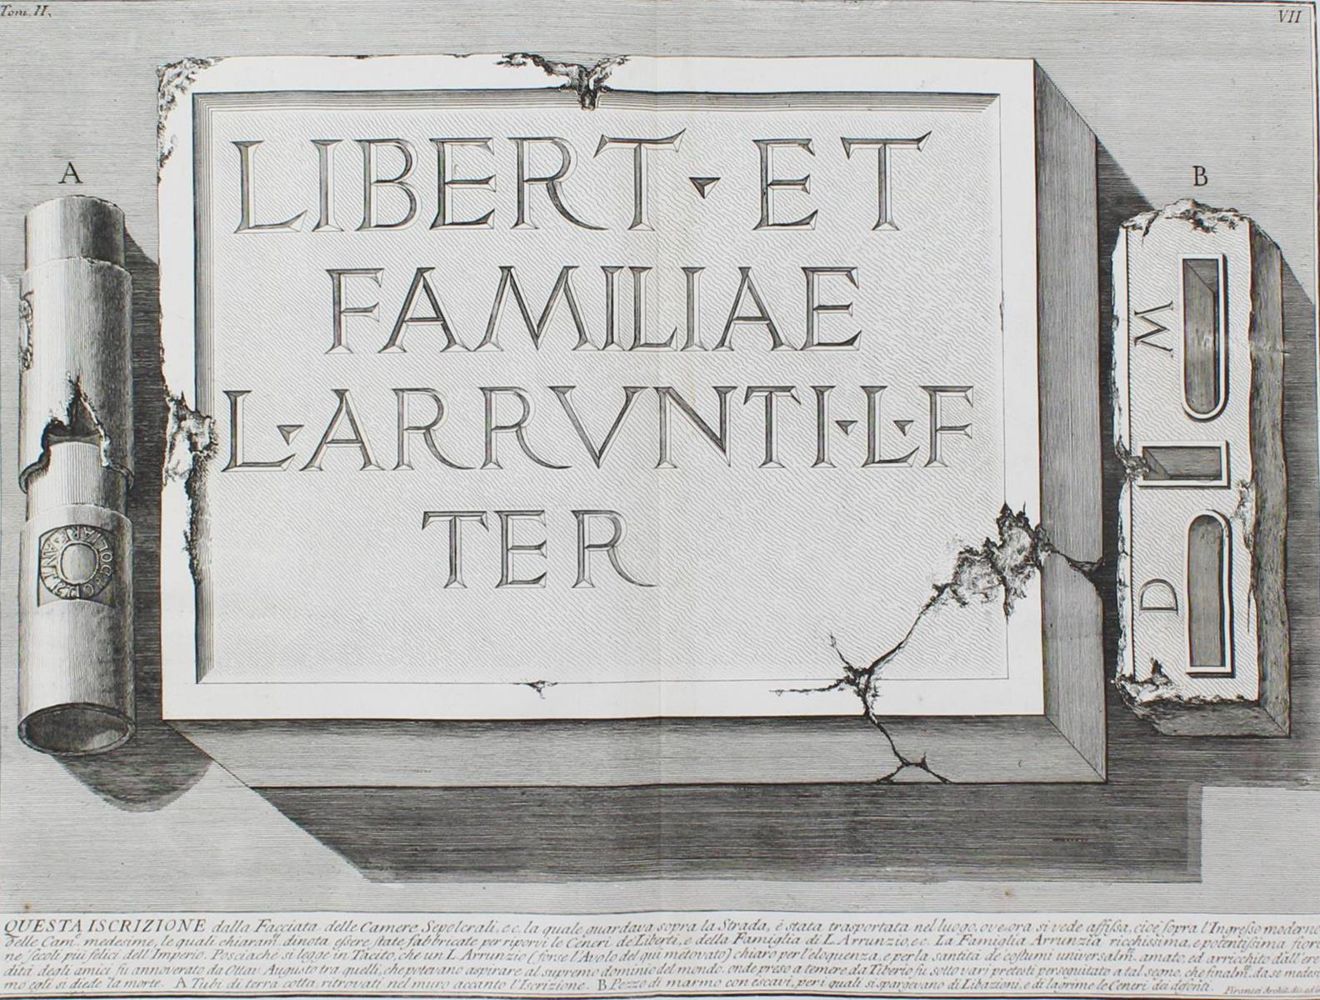 Tom. II.
VII
A
B
LIBERT · ET
FAMILIAE
L · ARRVNTI · L · F
TER
M
D
QUESTA ISCRIZIONE dalla Facciata delle Camere Sepolcrali, ec. la quale guardava sopra la Strada, è stata trasportata nel luogo, ove ora si vede affissa, cioè sopra l'Ingresso moderno
delle Cam.e medesime, le quali chiaram. dinota essere state fabbricate per riporvi le Ceneri de Liberti, e della Famiglia di L. Arrunzio, ec. La Famiglia Arrunzia ricchissima, e potentissima fiorì
ne' secoli più felici dell'Imperio. Posciache si legge in Tacito, che un L. Arrunzio (forse l'Avolo del qui metovato) chiaro per l'eloquenza, e per la santità de' costumi universalm. amato, ed arricchito dall'ere
dità degli amici fu annoverato da Ottav. Augusto tra quelli, che potevano aspirare al supremo dominio del mondo, onde preso a temere da Tiberio fu sotto varj pretesti perseguitato a tal segno, che finalm. da se medesi
mo egli si diede la morte. A Tubi di terra cotta ritrovati nel muro accanto l'Iscrizione. B Pezzo di marmo con escavi, per i quali si spargevano di Libazioni, e di lagrime le Ceneri de defonti.
Piranesi Archit. dis. ed inc.